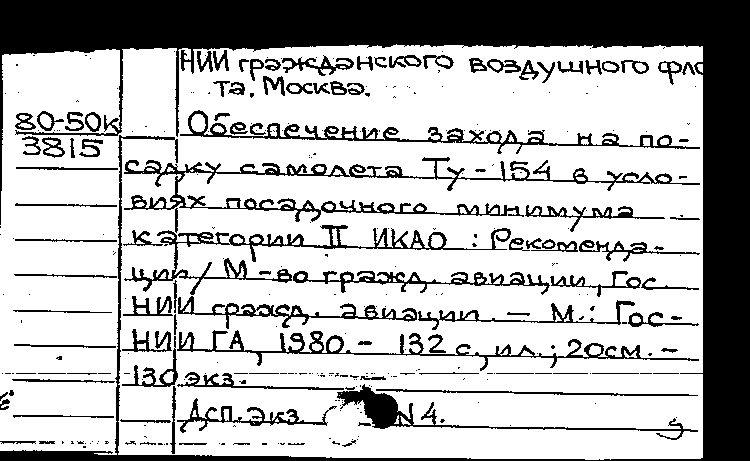 НИИ гражданского воздушного фло
та. Москва.
80-50к
3815
Обеспечение захода на по-
садку самолета Ту-154 в усло-
виях посадочного минимума
категории II ИКАО : Рекоменда-
ции / М-во гражд. авиации, Гос.
НИИ гражд. авиации. — М.: Гос-
НИИ ГА, 1980. - 132 с., ил.; 20см. -
130 экз.
Дсп. экз. N 4.